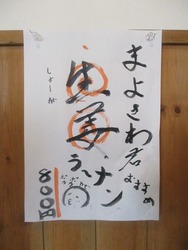 まよきわ君
おすすめ
生姜ラーメン
しょーが
800円